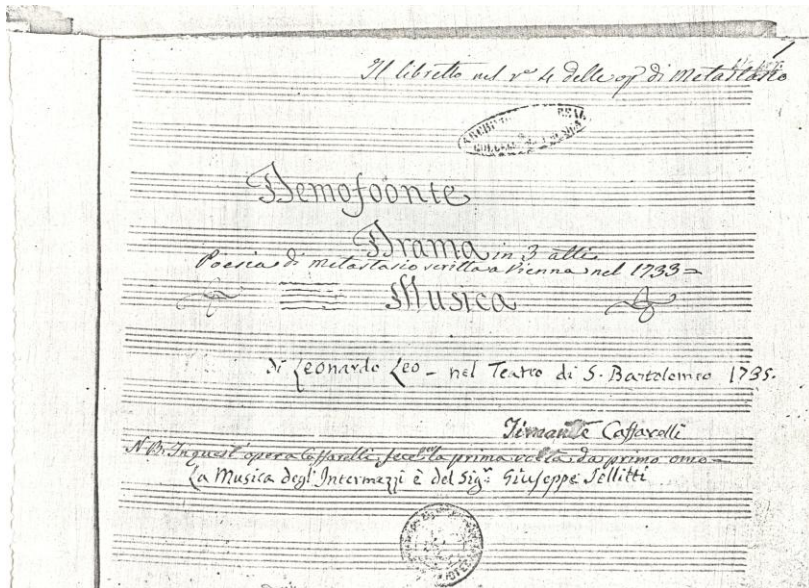 Il libretto nel v.º 4 delle op. di Metastasio
ARCHIVIO REAL
COLLEG MUSICA
Demofoonte
Drama in 3 atti
Poesia di Metastasio scritta a Vienna nel 1733 =
Musica
di Leonardo Leo _ nel Teatro di S. Bartolomeo 1735.
Timante Caffarelli
N.B. In quest'opera Caffarelli fece la prima volta da primo omo _
La Musica degl'Intermezzi è del Sig.r Giuseppe Sellitti